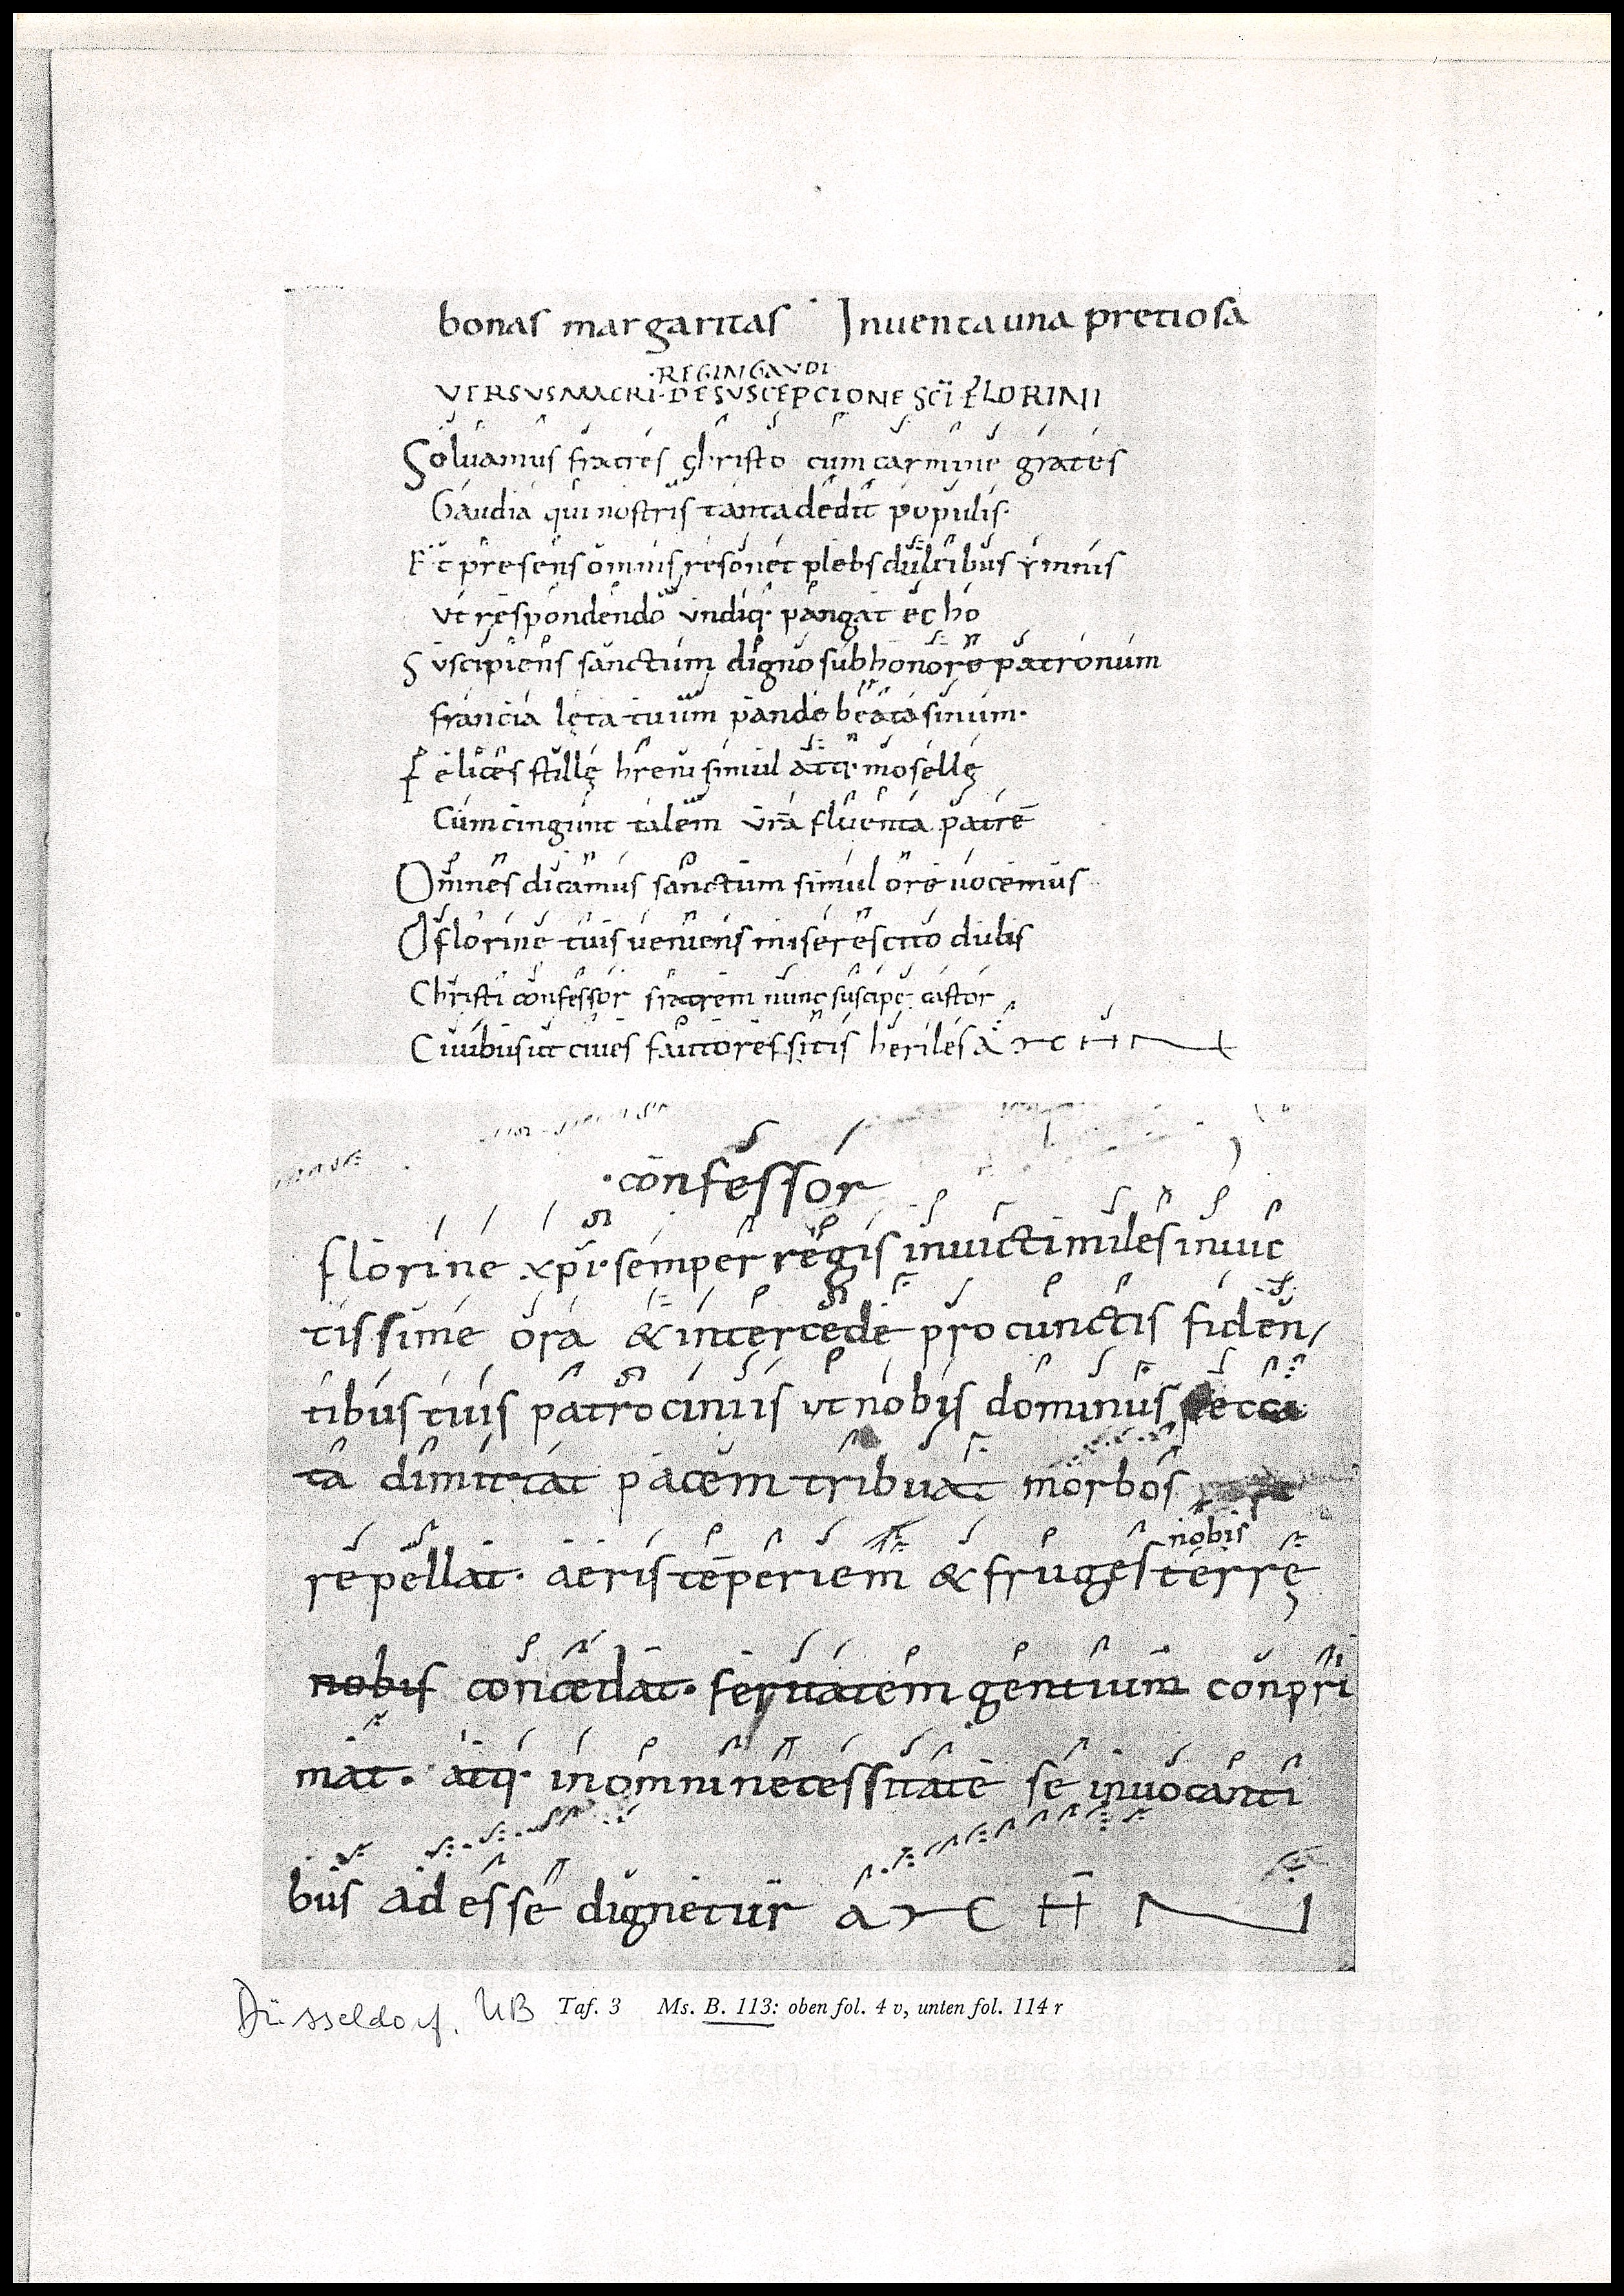 bonas margaritas Inuenta una pretiosa
·REGINGAVDI
VERSVS MACRI· DE SVSCEPCIONE SCĪ FLORINI
Soluamus fratres christo cum carmine grates
Gaudia qui nostris tanta dedit populis·
Et presens omnis resonet plebs dulcibus ymnis
Vt respondendo undiq· pangat echo
Suscipiens sanctum digno sub honore patronum
francia lęta tuum pande beata sinum·
Felices stillę hreni simul atq· mosellę
Cum cingunt talem vr̄a fluenta patrē
Omnes dicamus sanctum simul ore uocemus
O florine tuis ueniens miserescito
Christi confessor fratrem nunc suscipe castor
Ciuibus ut ciues fautores sitis heriles
·confessor
florine xp̄i· semper regis inuicti miles inuic
tissime ora & intercede pro cunctis fiden/
tibus tuis patrociniis ut nobis dominus pecca
ta dimittat pacem tribuat morbos
nobis
repellat· aeris tēperiem & fruges terrę
nobis concedat· feruatem gentium conpri
mat· atq· in omni necessitate se inuocanti
bus adesse dignetur
Düsseldorf, UB Taf. 3 Ms. B. 113: oben fol. 4 v, unten fol. 114 r